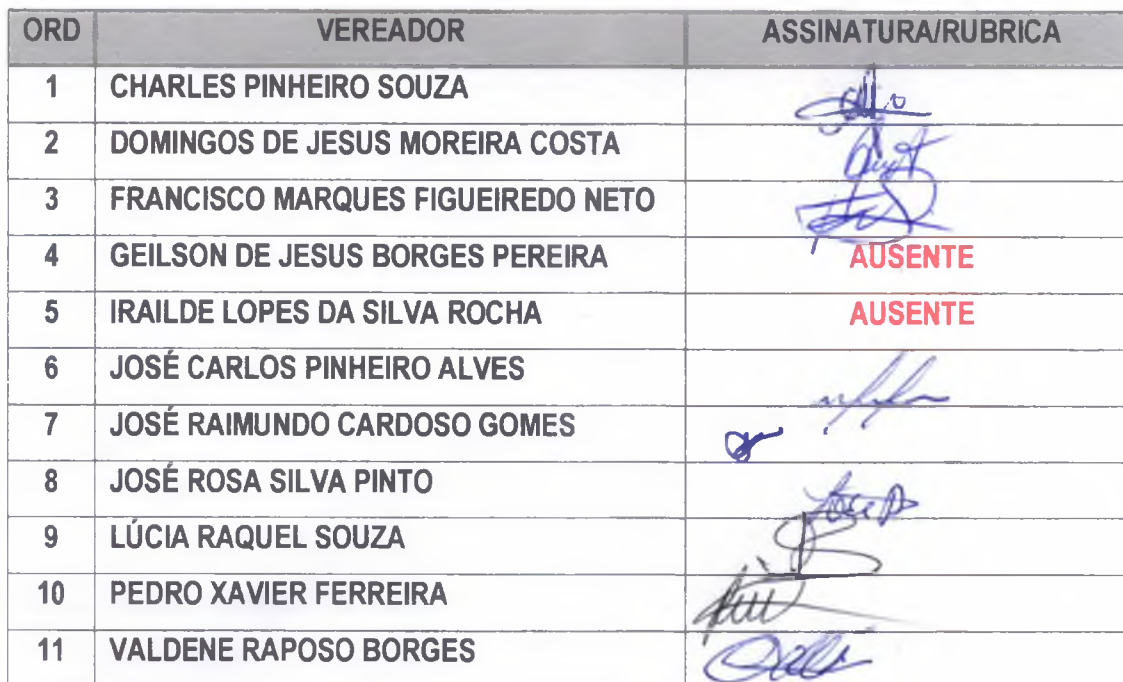 ORD VEREADOR ASSINATURA/RUBRICA
1 CHARLES PINHEIRO SOUZA
2 DOMINGOS DE JESUS MOREIRA COSTA
3 FRANCISCO MARQUES FIGUEIREDO NETO
4 GEILSON DE JESUS BORGES PEREIRA AUSENTE
5 IRAILDE LOPES DA SILVA ROCHA AUSENTE
6 JOSÉ CARLOS PINHEIRO ALVES
7 JOSÉ RAIMUNDO CARDOSO GOMES
8 JOSÉ ROSA SILVA PINTO
9 LÚCIA RAQUEL SOUZA
10 PEDRO XAVIER FERREIRA
11 VALDENE RAPOSO BORGES